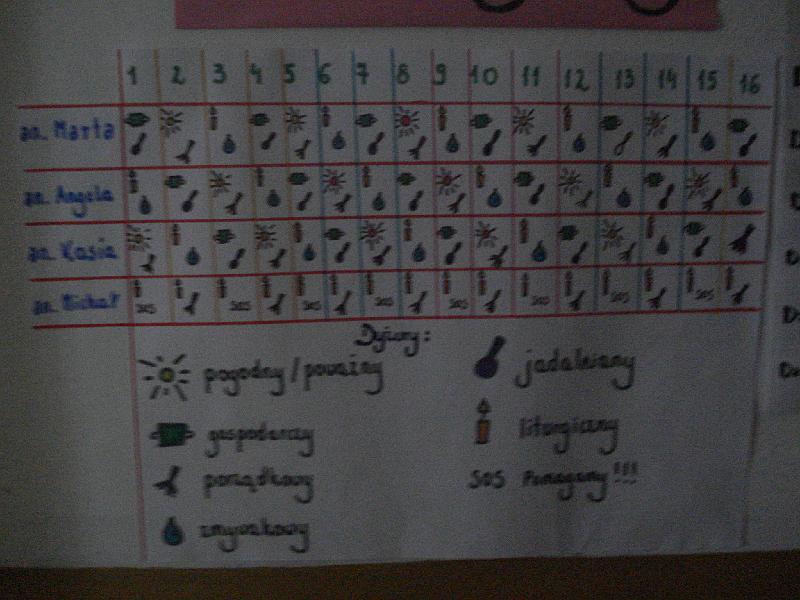 1 2 3 4 5 6 7 8 9 10 11 12 13 14 15 16
an. Marta
an. Angela
an. Kasia
an. Michał SOS SOS SOS SOS SOS SOS SOS SOS
Dyżury:
pogodny / poważny
jadalniany
gospodarczy
liturgiczny
porządkowy
SOS Pomagamy !!!
zmywakowy